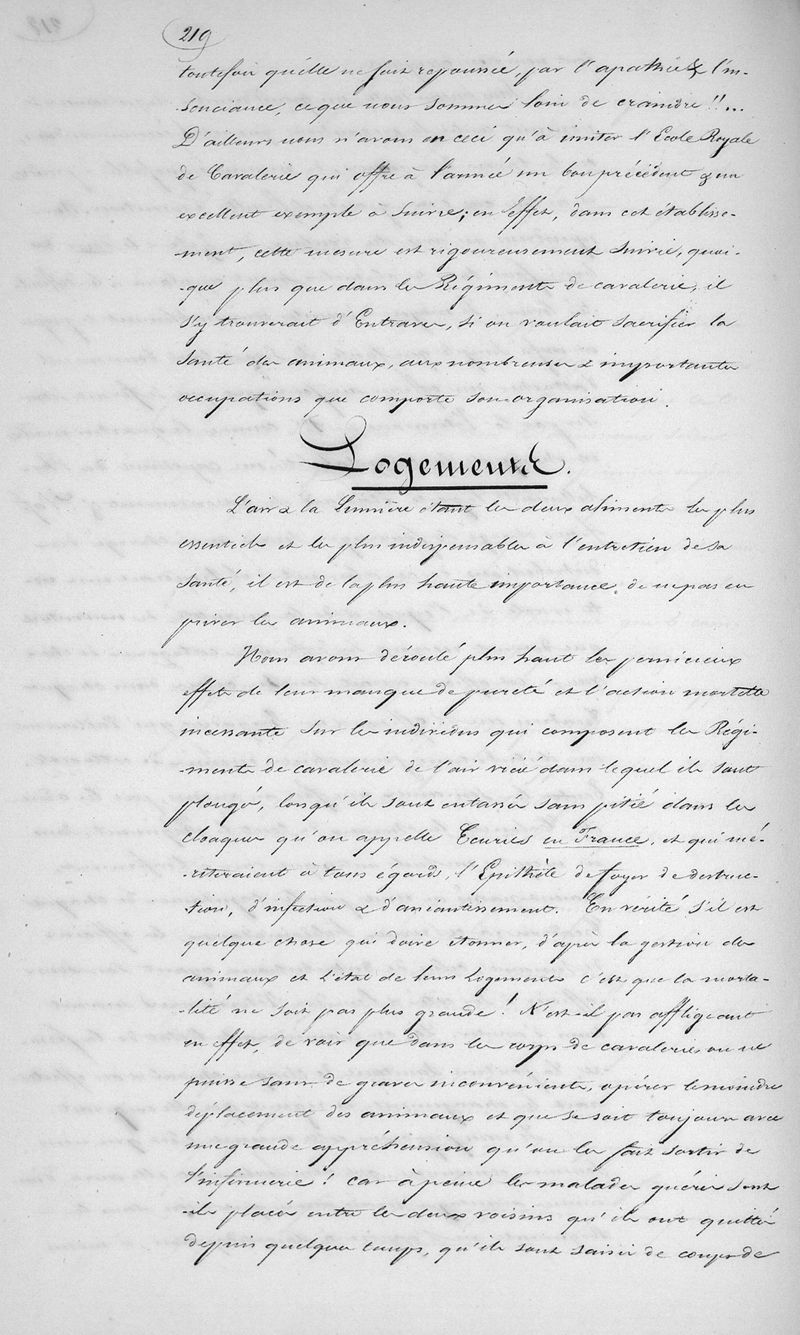 219
toutefois qu'elle ne soit repoussée, par l'apathie & l'in-
souciance, ce que nous sommes loin de craindre !!...
D'ailleurs nous n'avons en ceci qu'à imiter l'Ecole Royale
de Cavalerie qui offre à l'armée un bon précédent & un
excellent exemple à suivre; en effet, dans cet établisse-
-ment, cette mesure est rigoureusement suivie, quoi-
-que plus que dans les Régiments de cavalerie, il
s'y trouverait d'Entraves, si on voulait sacrifier la
santé des animaux, aux nombreuses & importantes
occupations que comporte son organisation.
Logements.
L'air & la Lumière étant les deux aliments les plus
essentiels et les plus indispensables à l'entretien de la
santé, il est de la plus haute importance de ne pas en
priver les animaux.
Nous avons déroulé plus haut les pernicieux
effets de leur manque de pureté et l'action mortelle
incessante sur les individus qui composent les Régi-
-ments de cavalerie de l'air vicié dans lequel ils sont
plongés, lorsqu'ils sont entassés sans pitié dans les
cloaques qu'on appelle Ecuries en France, et qui mé-
-riteraient à tous égards, l'Epithète de foyer de destruc-
-tion, d'infection & d'anéantissement. En vérité s'il est
quelque chose qui doive etonner, d'après la gestion des
animaux et l'état de leurs logements c'est que la morta-
-lité ne soit pas plus grande! N'est-il pas affligeant
en effet, de voir que dans les corps de cavalerie on ne
puisse sans de graves inconvénients, opérer le moindre
déplacement des animaux et que se soit toujours avec
une grande appréhension qu'on les fait sortir de
l'infirmerie! car à peine les malades guéris sont
-ils placés entre les deux voisins qu'ils ont quittés
depuis quelques temps, qu'ils sont saisis de coups de